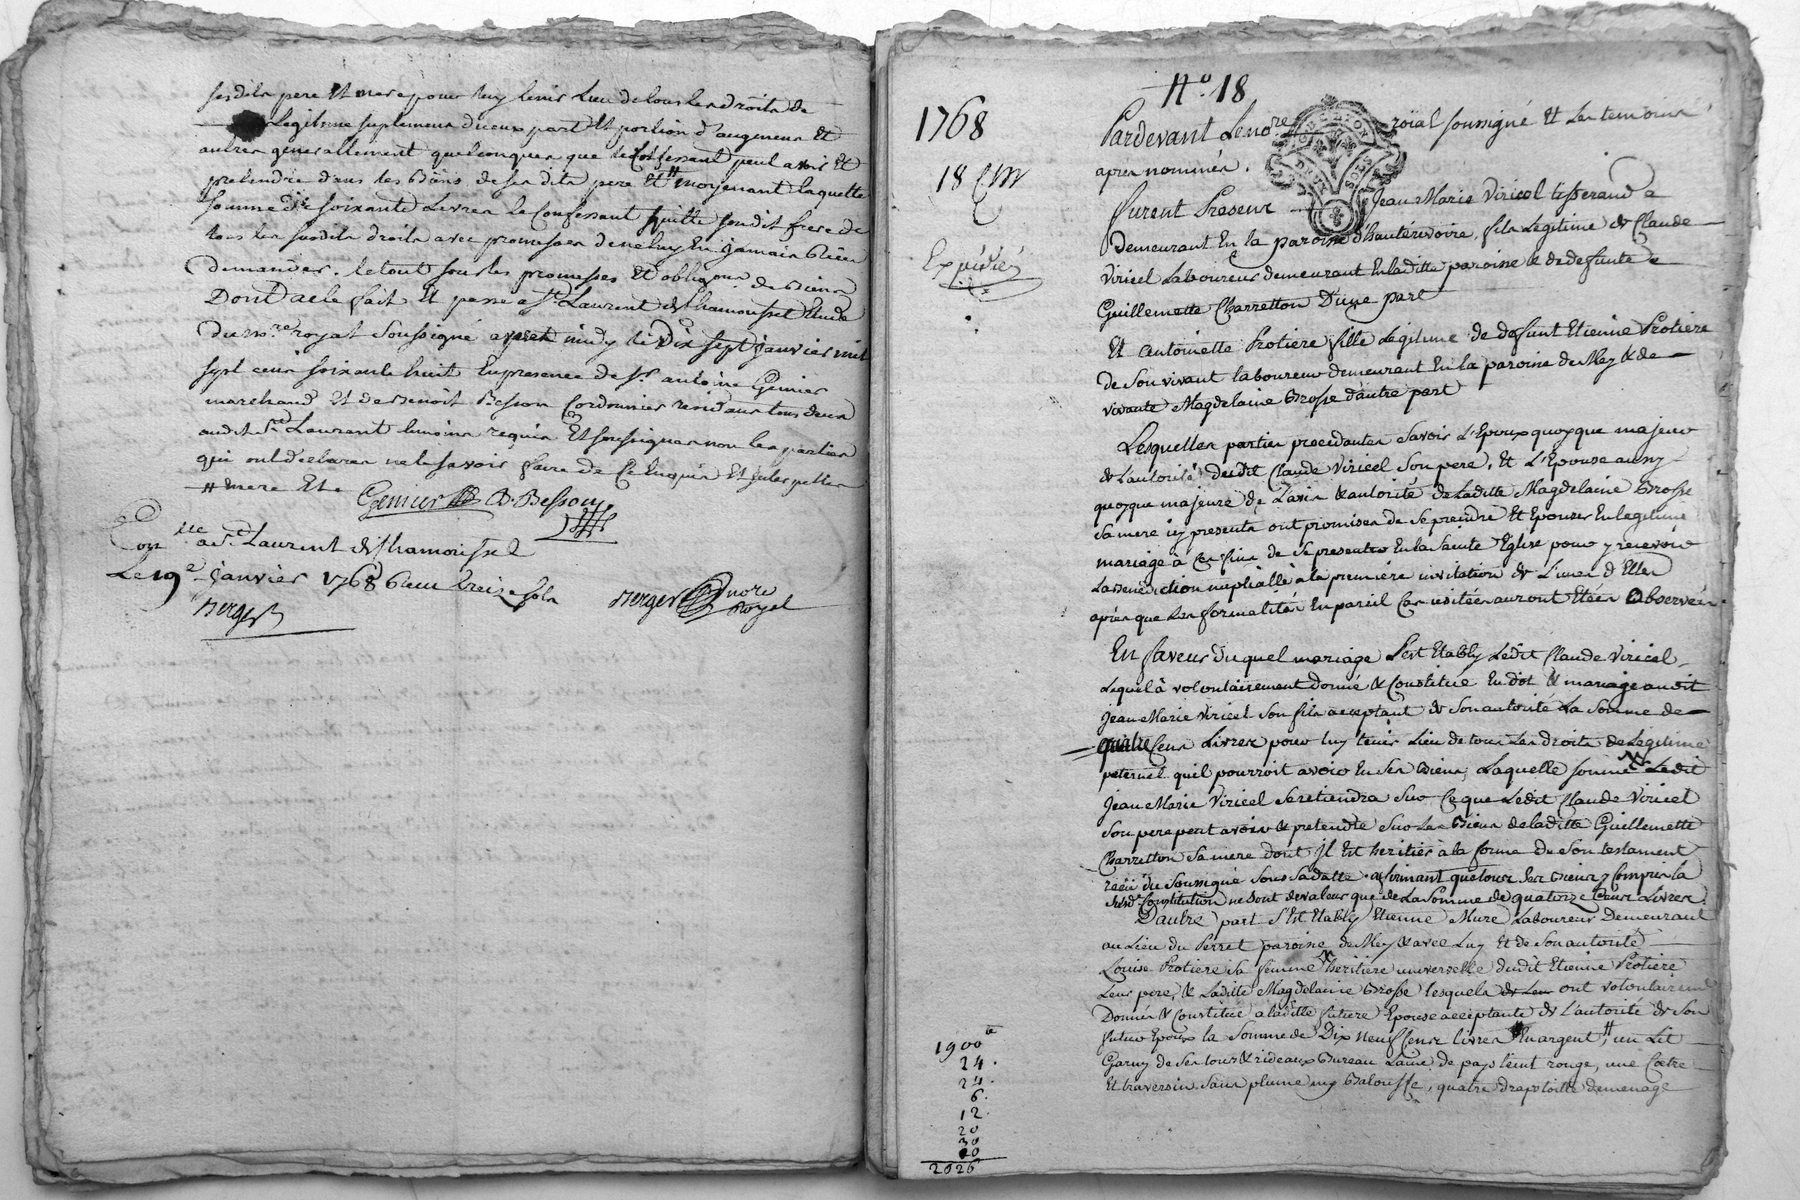 sesdits pere et mere pour luy tenir Lieu de tous les droits de
Legitime suplement diceux part et portion d'augment et
autres generallement quelconques que le Confessant peut avoir et
pretendre dans les Biens de ses dits pere et # moyenant laquelle
somme de soixante Livres le Confessant quitte son dit frere de
tous les susdits droits avec promesses de ne luy En jamais Rien
demander. le tout sous les promesses et obligons. de Biens
Dont acte fait et passé a st. Laurent de Chamousset Etude
du nore. royal soussigné apres midy le Dix sept janvier mil
sept cens soixante huit En presence de sr. antoine Genier
marchand et de Benoit Besson Cordonnier residans tous deux
audit st. Laurant temoins requis Et soussignés non les parties
qui ont declarés ne le savoir faire de Ce Enquis Et Interpellés
# mere Et
Genier B. Besson
Conlle a st. Laurent de Chamousset
Le 19e janvier 1768 Receu treize sols
Berger
Berger nore
Royal
No. 18
1768
18 Cm
Expedié
Pardevant Le nore. roïal soussigné et les temoins
après nommés.
GÉN. LYON
DEUX SOLS
Furent Presens Jean Marie Viricel tisserand
demeurant En la paroisse d'hauterivoire, fils Legitime de Claude
Viricel Laboureur demeurant En laditte paroisse & de deffunte
Guillemette Charretton D'une part
Et antoinette Protiere fille Legitime de deffunt Etienne Protiere
de Son vivant laboureur demeurant En la paroisse de Meys & de
vivante Magdelaine Grosse d'autre part
Lesquelles parties procedantes Savoir L'Epoux quoyque majeur
de L'autorité dudit Claude Viricel Son pere, et L'Epouse aussy
quoyque majeure de L'avis & autorité de Laditte Magdelaine Grosse
Sa mere icy presents ont promises de Se prendre et Epouser En legitime
mariage à Ces fins de Se presenter En la Sainte Eglise pour y recevoir
La Benediction nuptialle à la première invitation de L'un ou d'Elles
après que Les formalités En pareil Cas usitées auront Etées Observées
En faveur du quel mariage S'est Etably Ledit Claude Viricel
Lequel à volontairement donné & Constitué En dot & mariage audit
Jean Marie Viricel Son fils acceptant de Son autorité La Somme de
quatre Cens Livres pour luy tenir Lieu de tous Les droits de Legitime
paternel qu'il pourroit avoir En Ses Biens, Laquelle somme Ledit
Jean Marie Viricel Se retiendra Sur Ce que Ledit Claude Viricel
Son pere peut avoir & pretendre Sur Les Biens de laditte Guillemette
Charretton Sa mere dont Il Est heritier à la forme de Son testament
reçü du Soussigné Sous Sa datte. afirmant que tous Ses Biens y Compris la
Susde. Constitution ne Sont de valeur que de La Somme de quatorze Cens Livres.
D'autre part S'Est Etably Etienne Mure Laboureur Demeurant
au Lieu du Perret paroisse de Meys & avec Luy et de Son autorité
Louise Protiere Sa femme heritière universelle dudit Etienne Protiere
Leur pere, & Laditte Magdelaine Grosse lesquels de Leur ont volontairemt
Donnés & Constitué a laditte future Epouse acceptante de L'autorité de Son
futur Epoux la Somme de Dix neuf Cens livres En argent, # un Lit
Garny de Ses tours & rideaux Bureau Laine de pays teint rouge, une Coëtre
et traversin Sans plume ny Balouffe, quatre draps toille de menage
1900
24.
24.
6.
12.
20
30
20
2026